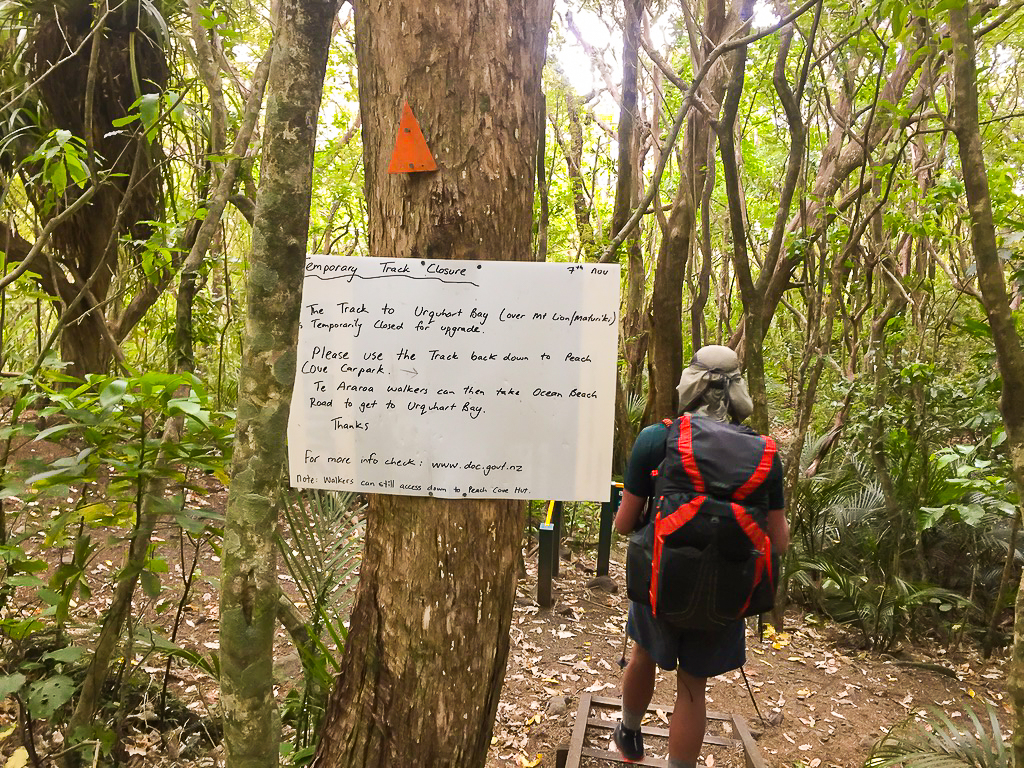 Temporary Track Closure 7th Nov
The Track to Urquhart Bay (over Mt Lion/Matariki)
is Temporarily Closed for upgrade.
Please use the Track back down to Peach
Cove Carpark. →
Te Araroa walkers can then take Ocean Beach
Road to get to Urquhart Bay.
Thanks
For more info check: www.doc.govt.nz
Note: Walkers can still access down to Peach Cove Hut.